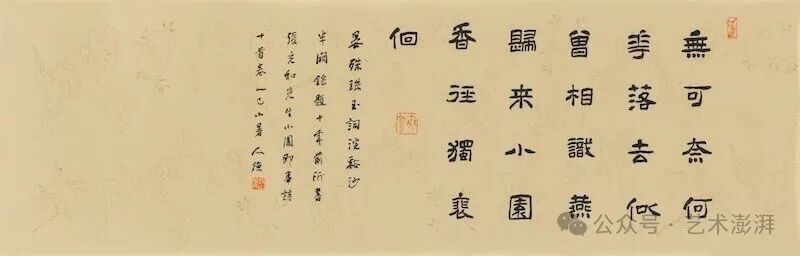 無可奈何
花落去似
曾相識燕
歸来小園
香徑獨裵
佪
晏殊珠玉詞浣谿沙
半闋錄題十前所書
張充和先生小園即事詩
十首卷乙巳小暑人
公众号 · 艺术澎湃